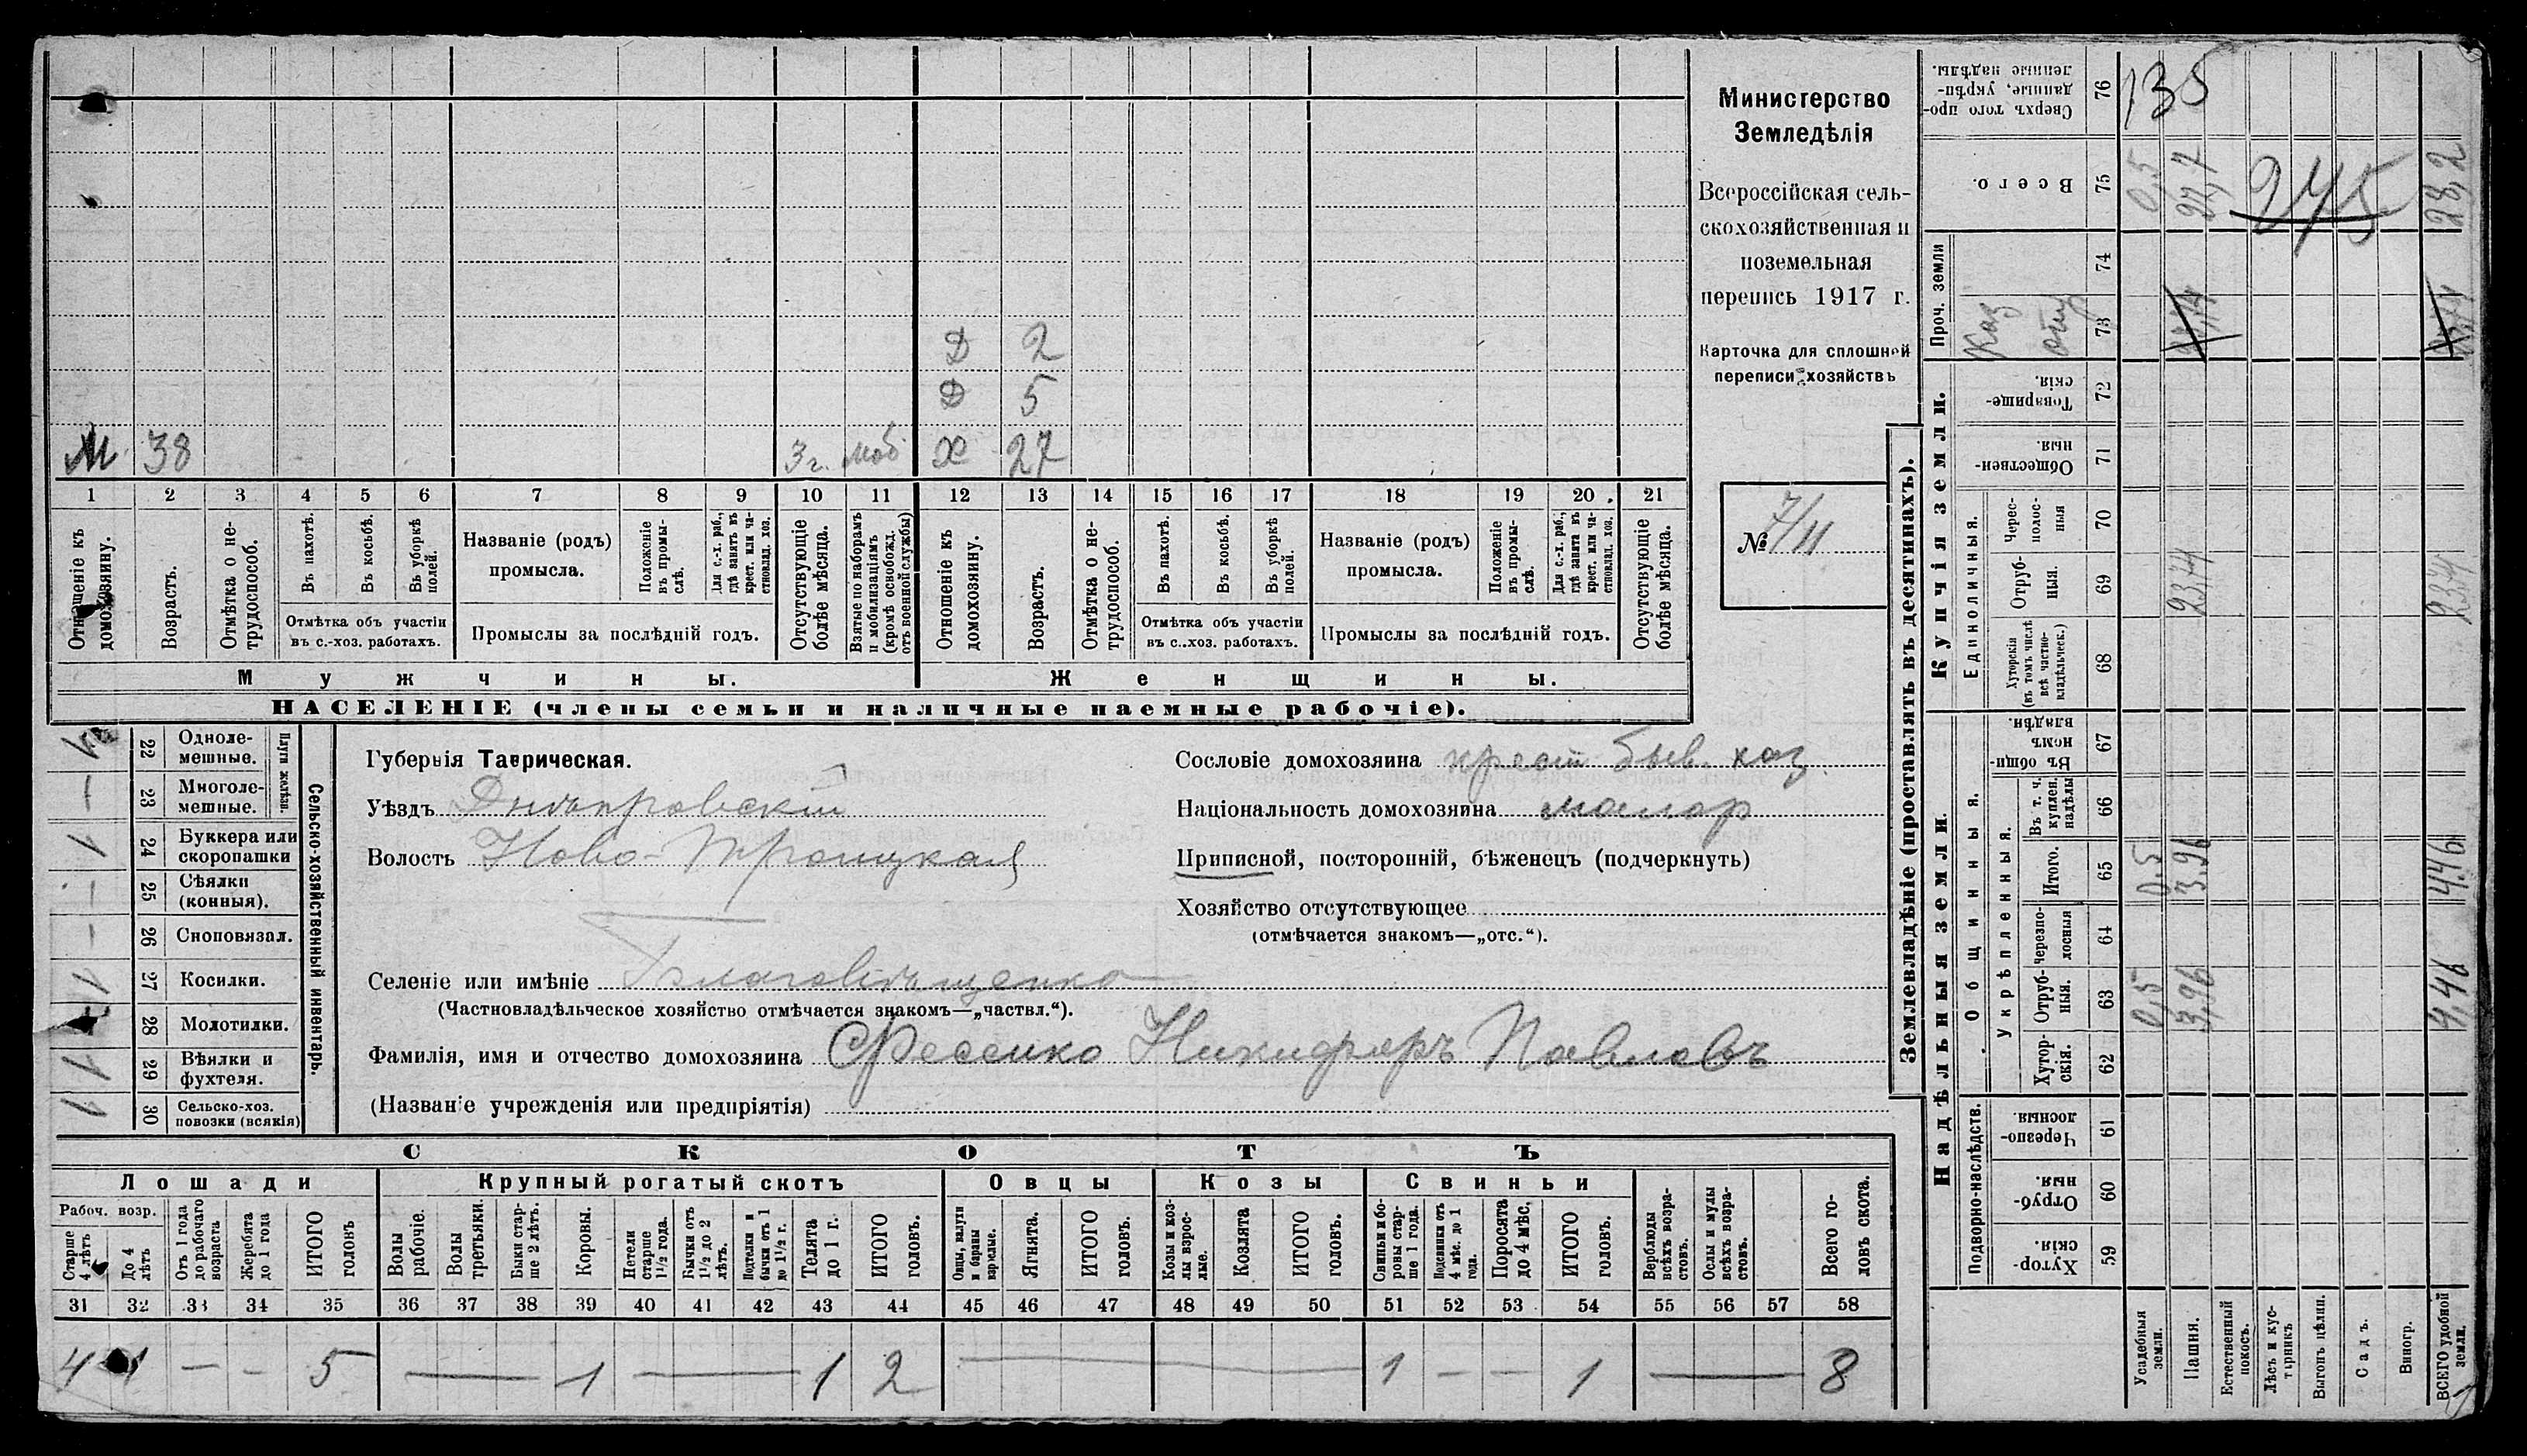 Министерство
Земледѣлія
Всероссійская сель-
скохозяйственная и
поземельная
перепись 1917 г.
Карточка для сплошной
переписи хозяйствъ
№ 7/11
Д 2
Д 5
М 38 3 г. моб. Х 27
1 2 3 4 5 6 7 8 9 10 11 12 13 14 15 16 17 18 19 20 21
Отношеніе къ домохозяину.
Возрастъ.
Отмѣтка о не-трудоспособ.
Въ пахотѣ.
Въ косьбѣ.
Въ уборкѣ полей.
Отмѣтка объ участіи
въ с.-хоз. работахъ.
Названіе (родъ)
промысла.
Положеніе въ промы-слѣ.
Для с.-х. раб., гдѣ занятъ въ крест. или ча-стновлад. хоз.
Промыслы за послѣдній годъ.
Отсутствующіе болѣе мѣсяца.
Взятые по наборамъ и мобилизаціямъ (кромѣ освобожд. отъ военной службы)
Отношеніе къ домохозяину.
Возрастъ.
Отмѣтка о не-трудоспособ.
Въ пахотѣ.
Въ косьбѣ.
Въ уборкѣ полей.
Отмѣтка объ участіи
въ с.-хоз. работахъ.
Названіе (родъ)
промысла.
Положеніе въ промы-слѣ.
Для с.-х. раб., гдѣ занята въ крест. или ча-стновлад. хоз.
Промыслы за послѣдній годъ.
Отсутствующіе болѣе мѣсяца.
Мужчины.
Женщины.
НАСЕЛЕНІЕ (члены семьи и наличные наемные рабочіе).
Сельско-хозяйственный инвентарь.
Плуги желѣзн.
22 Одноле-мешные.
— 23 Многоле-мешные.
1 24 Буккера или скоропашки
— 25 Сѣялки (конныя).
— 26 Сноповязал.
1 27 Косилки.
28 Молотилки.
1 29 Вѣялки и фухтеля.
1 30 Сельско-хоз. повозки (всякія)
Губернія Таврическая.
Уѣздъ Днѣпровскій
Волость Ново-Троицкая
Селеніе или имѣніе Благовѣщенко
(Частновладѣльческое хозяйство отмѣчается знакомъ—„частвл.“).
Фамилія, имя и отчество домохозяина Фесенко Никифоръ Павловъ
(Названіе учрежденія или предпріятія)
Сословіе домохозяина крест. быв. каз.
Національность домохозяина малор
Приписной, посторонній, бѣженецъ (подчеркнуть)
Хозяйство отсутствующее
(отмѣчается знакомъ—„отс.“).
СКОТЪ
Лошади
Крупный рогатый скотъ
Овцы
Козы
Свиньи
Рабоч. возр.
Старше 4 лѣтъ
До 4 лѣтъ
Отъ 1 года до рабочаго возраста
Жеребята до 1 года
ИТОГО головъ
Волы рабочіе.
Волы третьяки.
Быки стар-ше 2 лѣтъ.
Коровы.
Нетели старше 1½ года.
Бычки отъ 1½ до 2 лѣтъ.
Подтелки и бычки отъ 1 до 1½ г.
Телята до 1 г.
ИТОГО головъ.
Овцы, валухи и бараны взрослые.
Ягнята.
ИТОГО головъ.
Козы и коз-лы взрос-лые.
Козлята
ИТОГО головъ.
Свиньи и бо-ровы стар-ше 1 года.
Подсвинки отъ 4 мѣс. до 1 года.
Поросята до 4 мѣс.
ИТОГО головъ.
Верблюды всѣхъ возра-стовъ.
Ослы и мулы всѣхъ возра-стовъ.
Всего го-ловъ скота.
31 32 33 34 35 36 37 38 39 40 41 42 43 44 45 46 47 48 49 50 51 52 53 54 55 56 57 58
4 1 — — 5 — 1 — 1 2 — 1 — — 1 — 8
Землевладѣніе (проставлять въ десятинахъ).
Надѣльныя земли.
Купчія земли.
Проч. земли
Подворно-наслѣдств.
Общинныя.
Укрѣпленныя.
Единоличныя.
76 Сверхъ того про-данные, укрѣп-ленные надѣлы. 135
75 Всего. 0,5 245 28,2
74
73 Каз общ
72 Товарище-скія.
71 Обществен-ныя.
70 Черес-полос-ныя
69 Отруб-ныя. 23,74 23,74
68 Хуторскія (въ томъ числѣ всѣ частно-владѣльческ.)
67 Въ общин-номъ владѣн.
66 Въ т. ч. куплен. надѣлы
65 Итого. 0,5 3,96 4,46
64 Черезпо-лосныя
63 Отруб-ныя. 0,5 3,96 4,46
62 Хутор-скія.
61 Черезпо-лосныя
60 Отруб-ныя.
59 Хутор-скія.
Усадебныя земли.
Пашня.
Естественный покосъ.
Лѣсъ и кус-тарникъ
Выгонъ цѣлин.
Садъ.
Виногр.
ВСЕГО удобной земли.